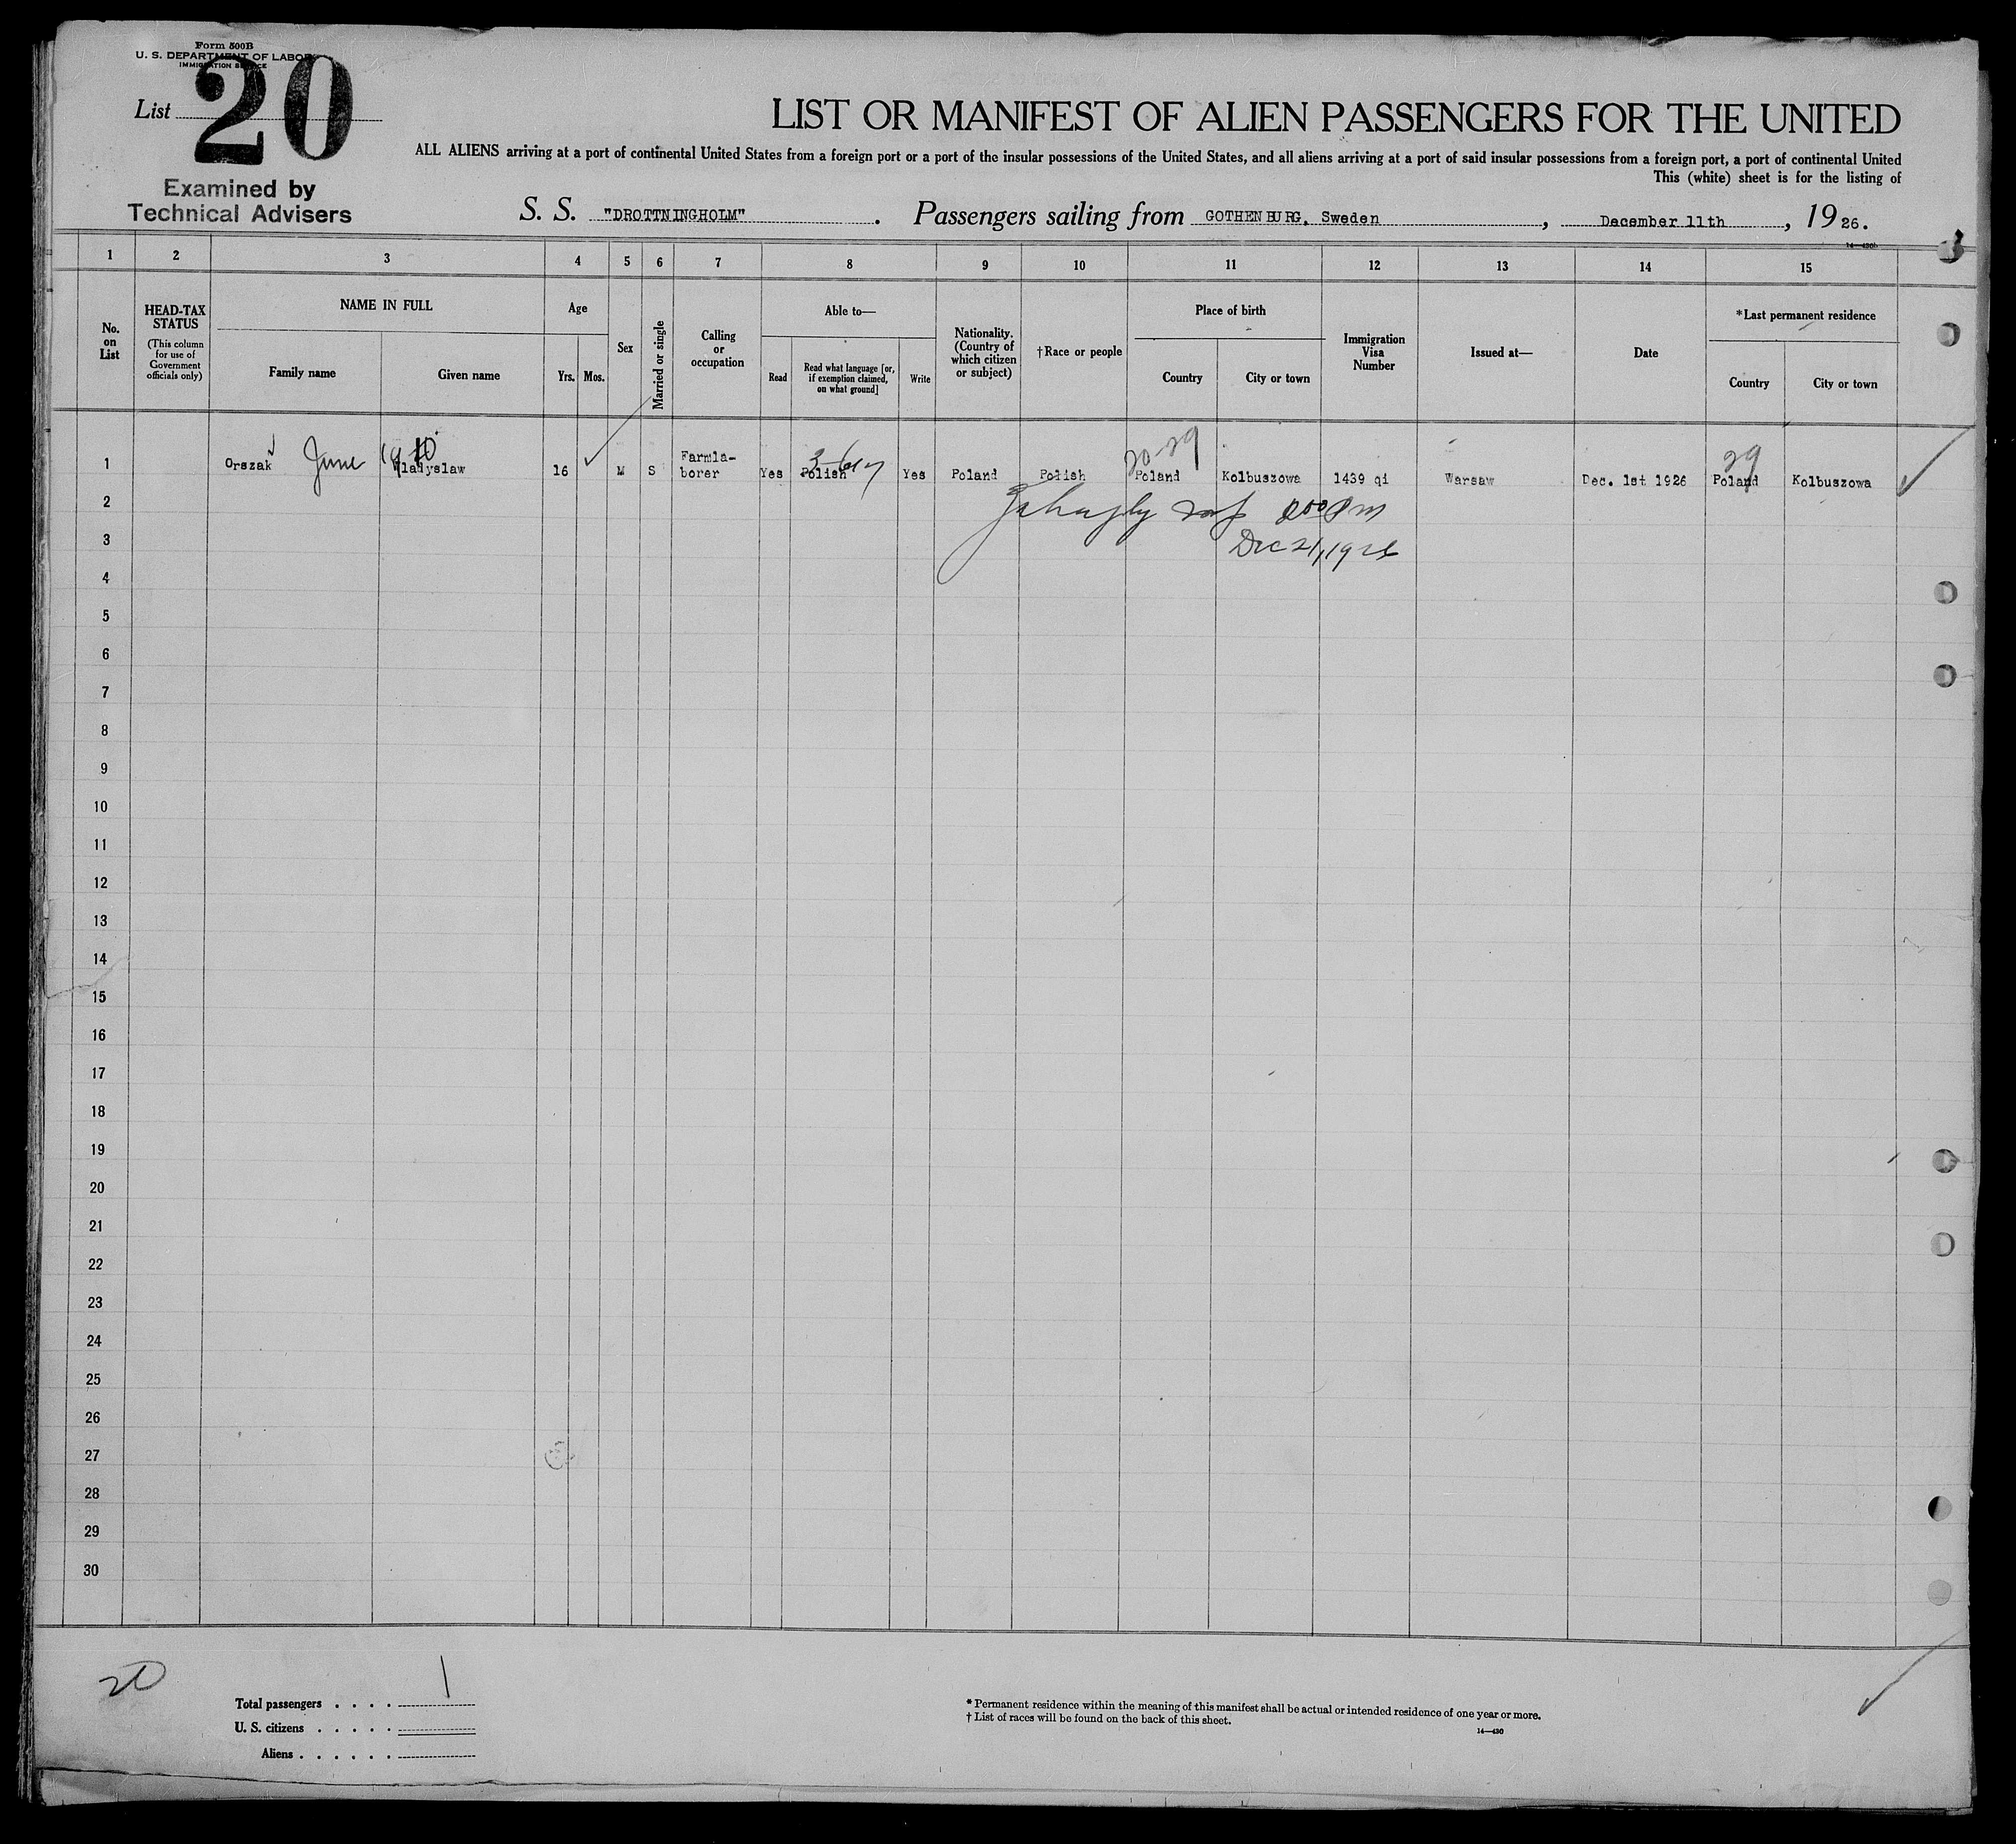 Form 500B
U. S. DEPARTMENT OF LABOR
IMMIGRATION SERVICE
List 20
LIST OR MANIFEST OF ALIEN PASSENGERS FOR THE UNITED
ALL ALIENS arriving at a port of continental United States from a foreign port or a port of the insular possessions of the United States, and all aliens arriving at a port of said insular possessions from a foreign port, a port of continental United
This (white) sheet is for the listing of
Examined by
Technical Advisers
S. S. "DROTTNINGHOLM". Passengers sailing from GOTHENBURG, Sweden, December 11th, 1926.
14—430b
3
1 2 3 4 5 6 7 8 9 10 11 12 13 14 15
No. on List
HEAD-TAX STATUS
(This column for use of Government officials only)
NAME IN FULL
Family name
Given name
Age
Yrs. Mos.
Sex
Married or single
Calling or occupation
Able to—
Read
Read what language [or, if exemption claimed, on what ground]
Write
Nationality. (Country of which citizen or subject)
†Race or people
Place of birth
Country
City or town
Immigration Visa Number
Issued at—
Date
*Last permanent residence
Country
City or town
June 1910
20-29
29
1 Orszak Wladyslaw 16 M S Farmla-borer Yes Polish Yes Poland Polish Poland Kolbuszowa 1439 qi Warsaw Dec. 1st 1926 Poland Kolbuszowa
2
Dec 21, 1926
3
4
5
6
7
8
9
10
11
12
13
14
15
16
17
18
19
20
21
22
23
24
25
26
27
28
29
30
20
Total passengers . . . . 1
U. S. citizens . . . . .
Aliens . . . . . .
* Permanent residence within the meaning of this manifest shall be actual or intended residence of one year or more.
† List of races will be found on the back of this sheet.
14—430